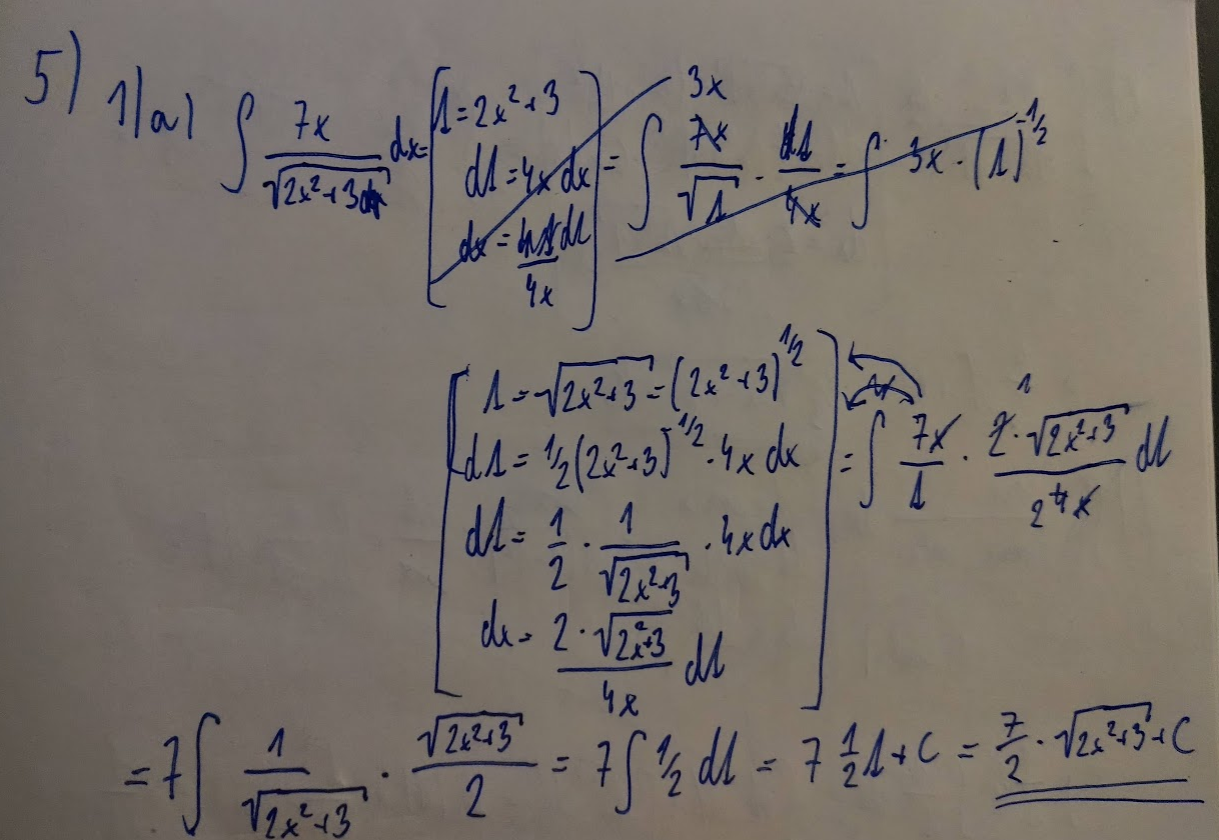 5) 1)a) ∫ 7x/√(2x²+3) dx = [1 = 2x²+3
d1 = 4x dx
dx = d1/4x] = ∫ 7x/√1 · d1/4x = ∫ 3x · (1)^(-1/2)
3x
[1 = √(2x²+3) = (2x²+3)^(1/2)
d1 = 1/2(2x²+3)^(-1/2) · 4x dx
d1 = 1/2 · 1/√(2x²+3) · 4x dx
dx = 2·√(2x²+3)/4x d1] = ∫ 7x/1 · 2·√(2x²+3)/4x d1
1
2
= 7∫ 1/√(2x²+3) · √(2x²+3)/2 = 7∫ 1/2 d1 = 7 1/2 1 + C = 7/2 · √(2x²+3) + C